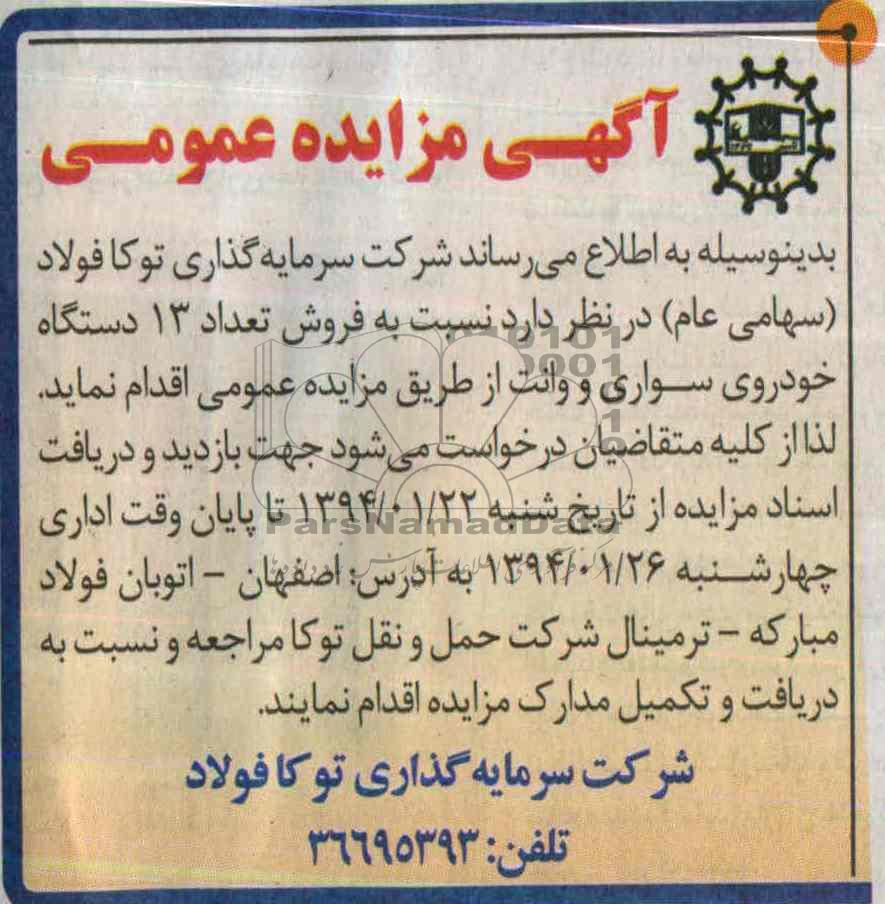 آگهی مزایده عمومی
بدینوسیله به اطلاع می‌رساند شرکت سرمایه‌گذاری توکا فولاد
(سهامی عام) در نظر دارد نسبت به فروش تعداد ۱۳ دستگاه
خودروی سواری و وانت از طریق مزایده عمومی اقدام نماید.
لذا از کلیه متقاضیان درخواست می‌شود جهت بازدید و دریافت
اسناد مزایده از تاریخ شنبه ۱۳۹۴/۰۱/۲۲ تا پایان وقت اداری
ParsNamadData
چهارشنبه ۱۳۹۴/۰۱/۲۶ به آدرس: اصفهان - اتوبان فولاد
مبارکه - ترمینال شرکت حمل و نقل توکا مراجعه و نسبت به
دریافت و تکمیل مدارک مزایده اقدام نمایند.
شرکت سرمایه‌گذاری توکا فولاد
تلفن: ۳۶۶۹۵۳۹۳